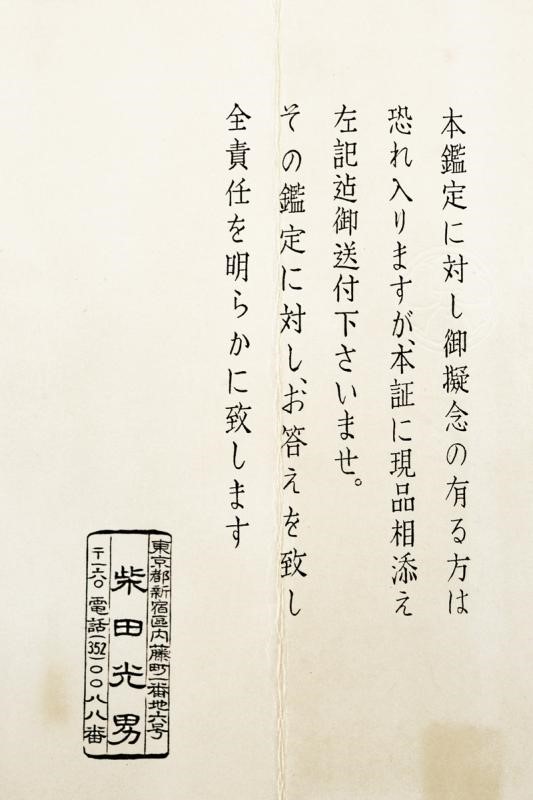 本鑑定に対し御擬念の有る方は
恐れ入りますが、本証に現品相添え
左記迠御送付下さいませ。
その鑑定に対し、お答えを致し
全責任を明らかに致します
東京都新宿區内藤町一番地六号
柴田光男
〒一六〇 電話(352)〇〇八八番